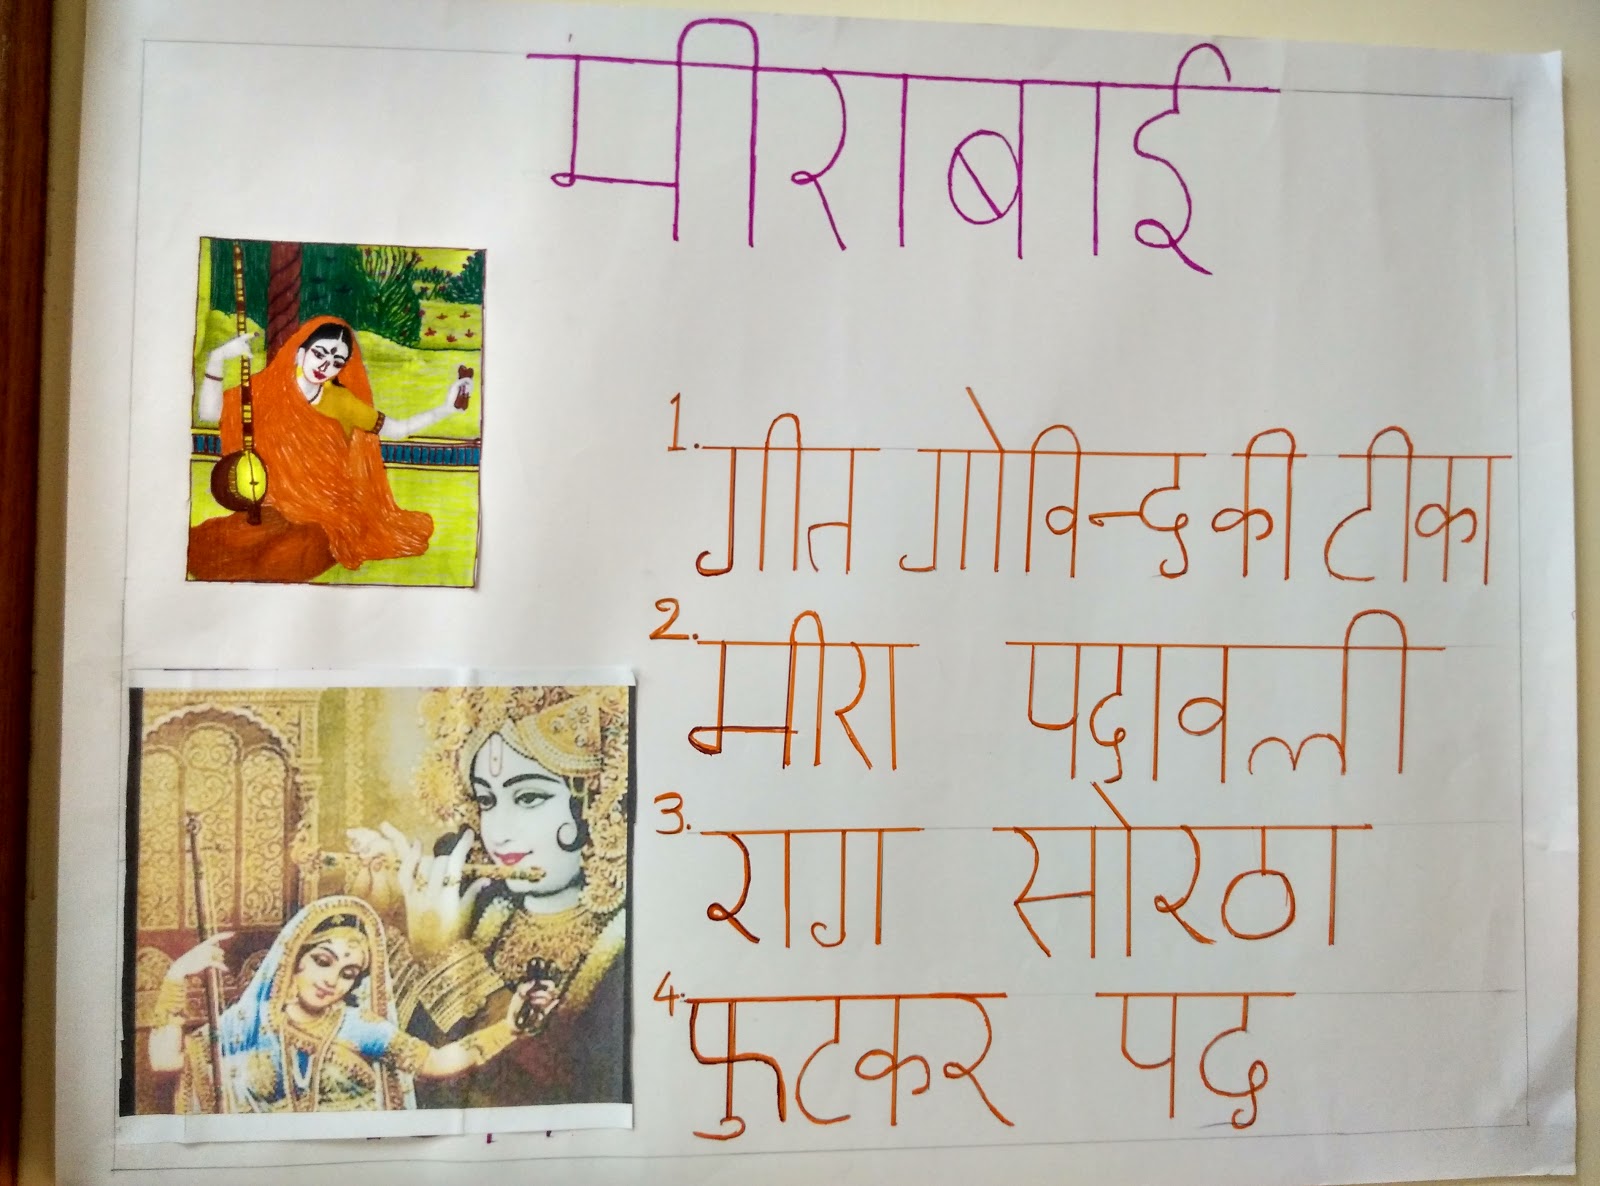 मीराबाई
1. गीत गोविन्द की टीका
2. मीरा पदावली
3. राग सोरठा
4. फुटकर पद